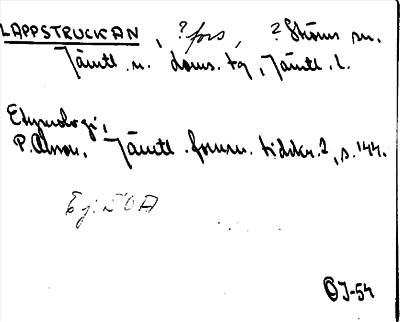 LAPPSTRUCKAN, ? fors, ? Ströms sn.
Jämtl. n. doms. tg, Jämtl. l.
Etymologi,
P. Olsson, Jämtl. fornm. tidskr. 2, s. 144.
Ej: SOA
ÖJ-54